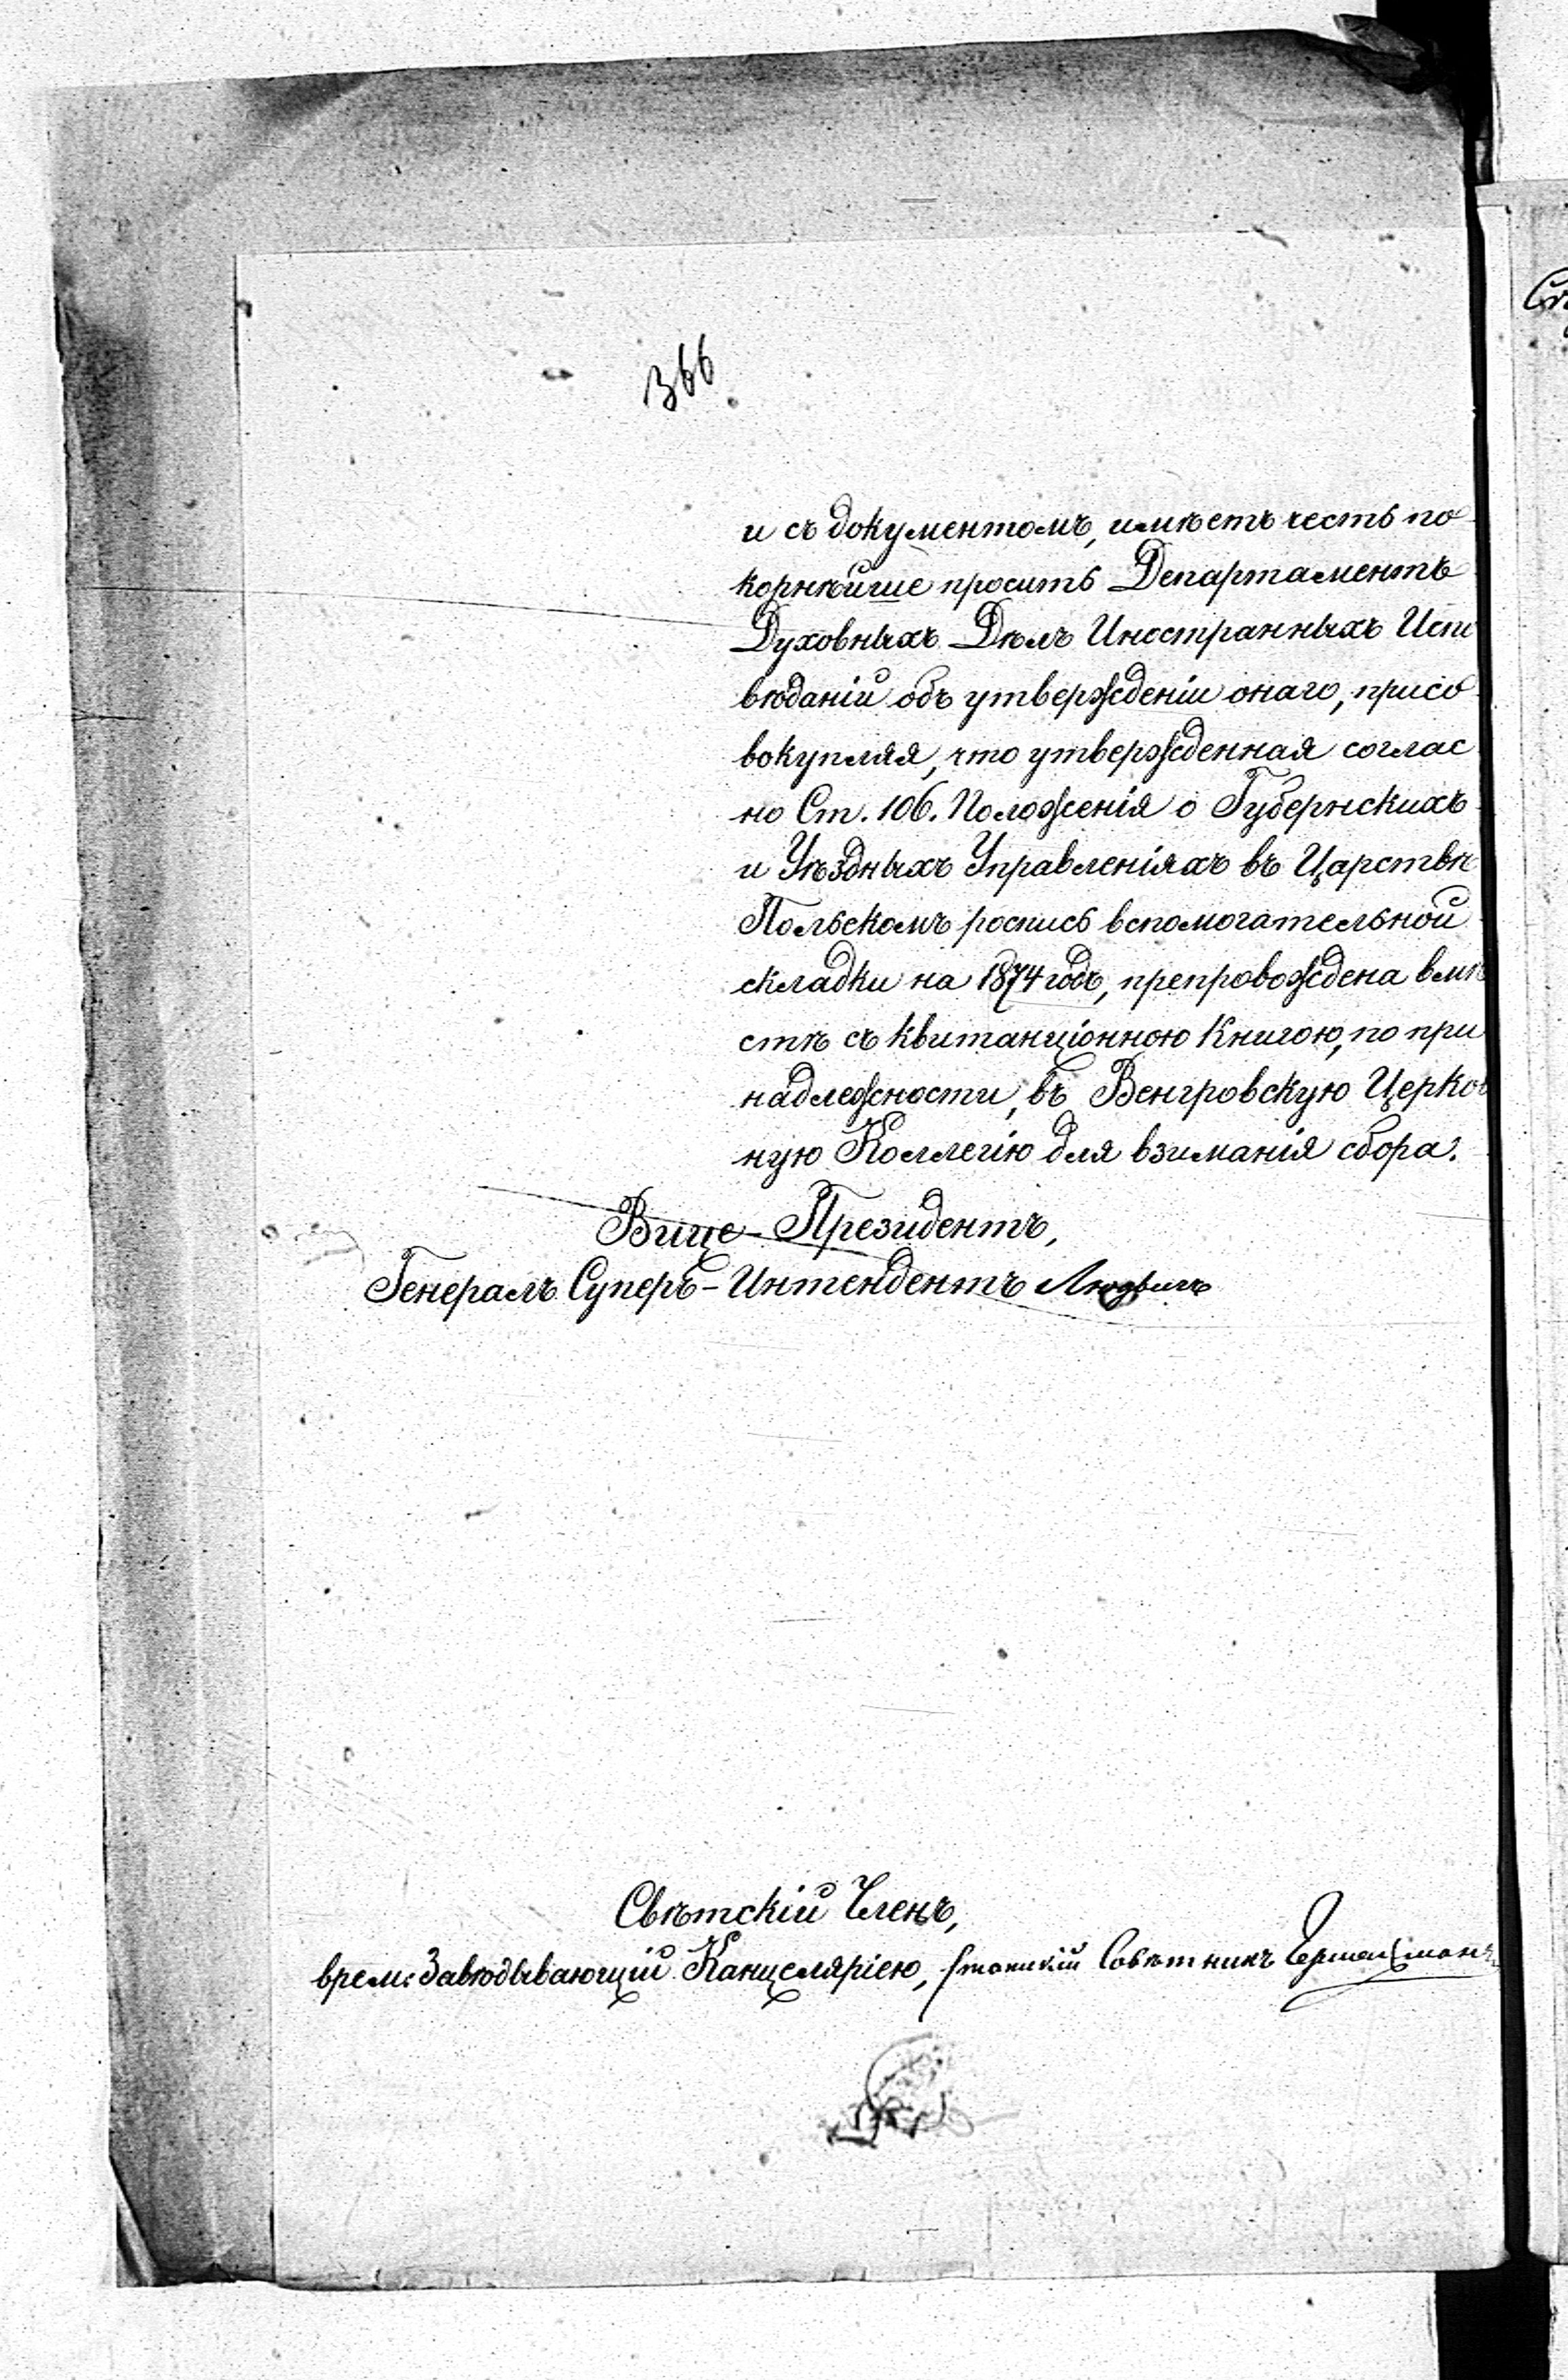 366
и съ документомъ, имѣетъ честь по
корнѣйше просить Департаментъ
Духовныхъ Дѣлъ Иностранныхъ Испо
вѣданій объ утвержденіи онаго, присо
вокупляя, что утвержденная соглас
но Ст. 106. Положенія о Губернскихъ
и Уѣздныхъ Управленіяхъ въ Царствѣ
Польскомъ роспись вспомогательной
складки на 1874 годъ, препровождена вмѣ
стѣ съ квитанціонною Книгою, по при
надлежности, въ Венгровскую Церков
ную Коллегію для взиманія сбора.
Вице-Президентъ,
Генералъ Суперъ-Интендентъ Людвигъ
Свѣтскій Членъ,
врем: Завѣдывающій Канцеляріею, Статскій Совѣтникъ